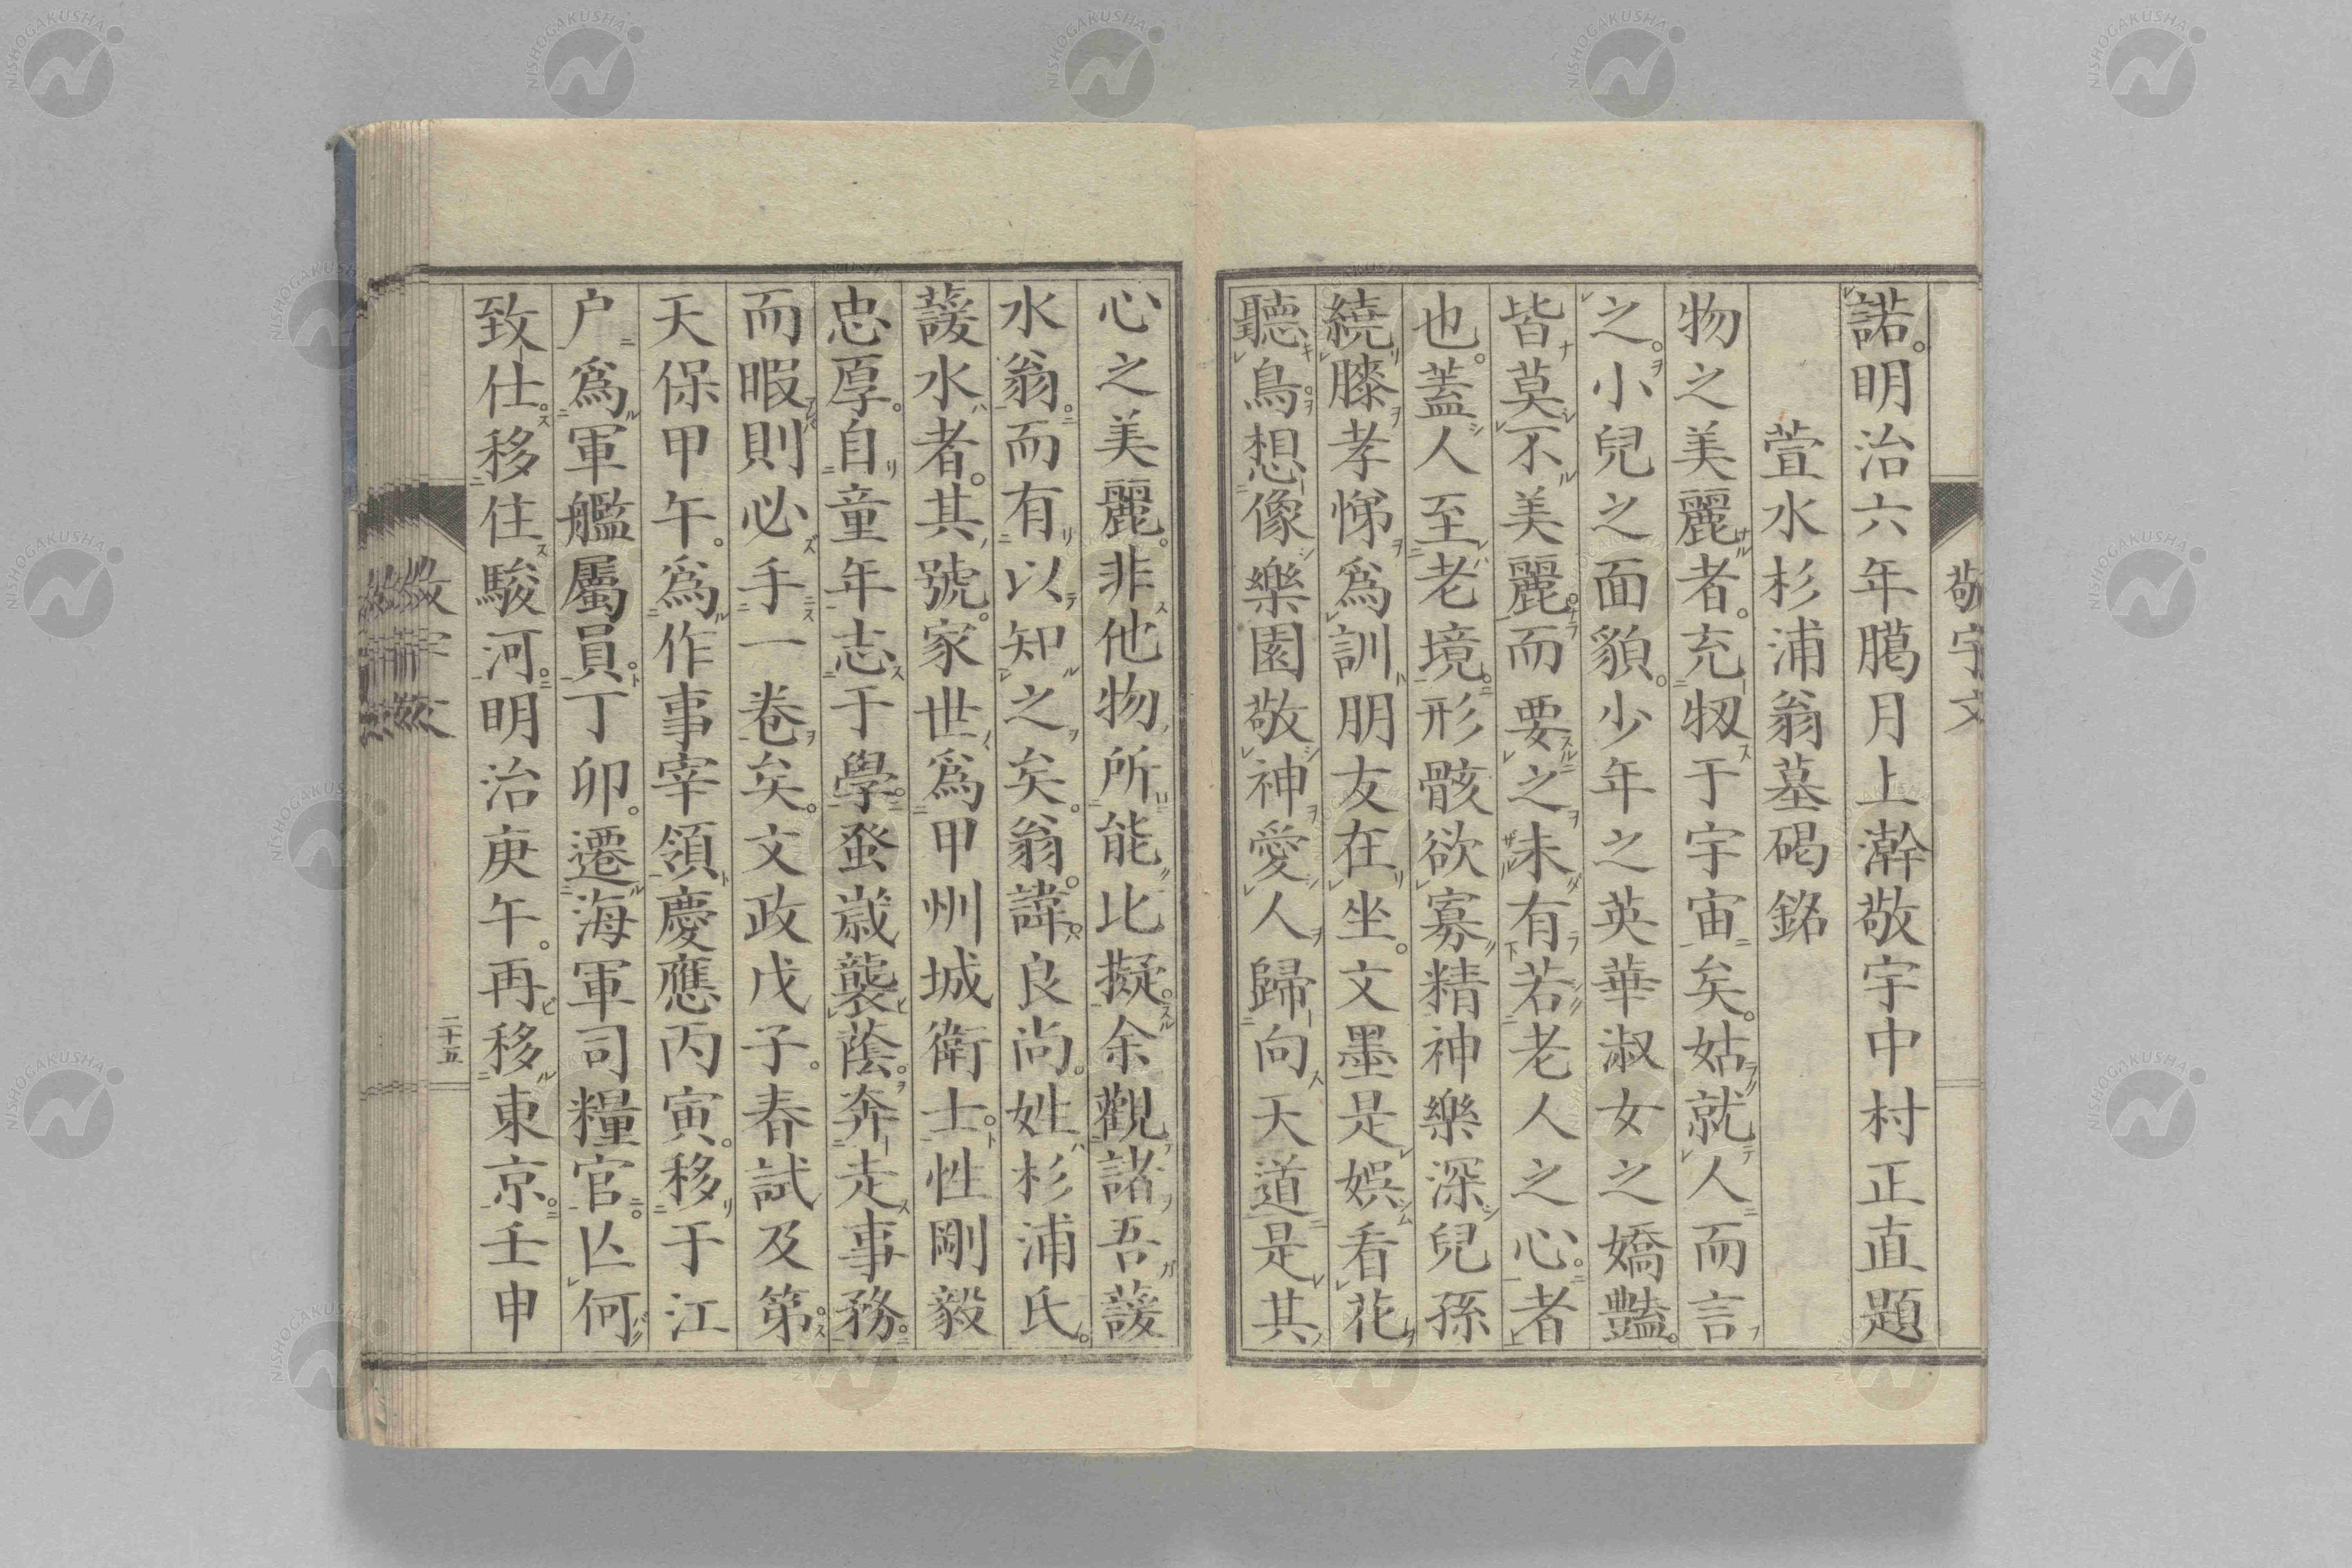 敬宇文
諾。明治六年臈月上澣敬宇中村正直題
萱水杉浦翁墓碣銘
物之美麗者。充牣于宇宙矣。姑就人而言
之。小兒之面貌。少年之英華淑女之嬌豔。
皆莫不美麗。而要之未有若老人之心。者
也。蓋人至老境。形骸欲寡精神樂深兒孫
繞膝孝悌爲訓朋友在坐。文墨是娯看花
聽鳥。想像樂園敬神愛人歸向天道是其
心之美麗。非他物所能比擬。余觀諸吾萲
水翁。而有以知之矣。翁。諱良尚。姓杉浦氏。
萲水者。其號。家世爲甲州城衛士。性剛毅
忠厚。自童年志于學。發歳襲蔭。奔走事務。
而暇則必手一卷矣。文政戊子。春試及第。
天保甲午。爲作事宰領慶應丙寅。移于江
户爲軍艦屬員。丁卯。遷海軍司糧官。亾何
致仕。移住駿河。明治庚午。再移東京。壬申
二十五
敬宇文
NISHOGAKUSHA